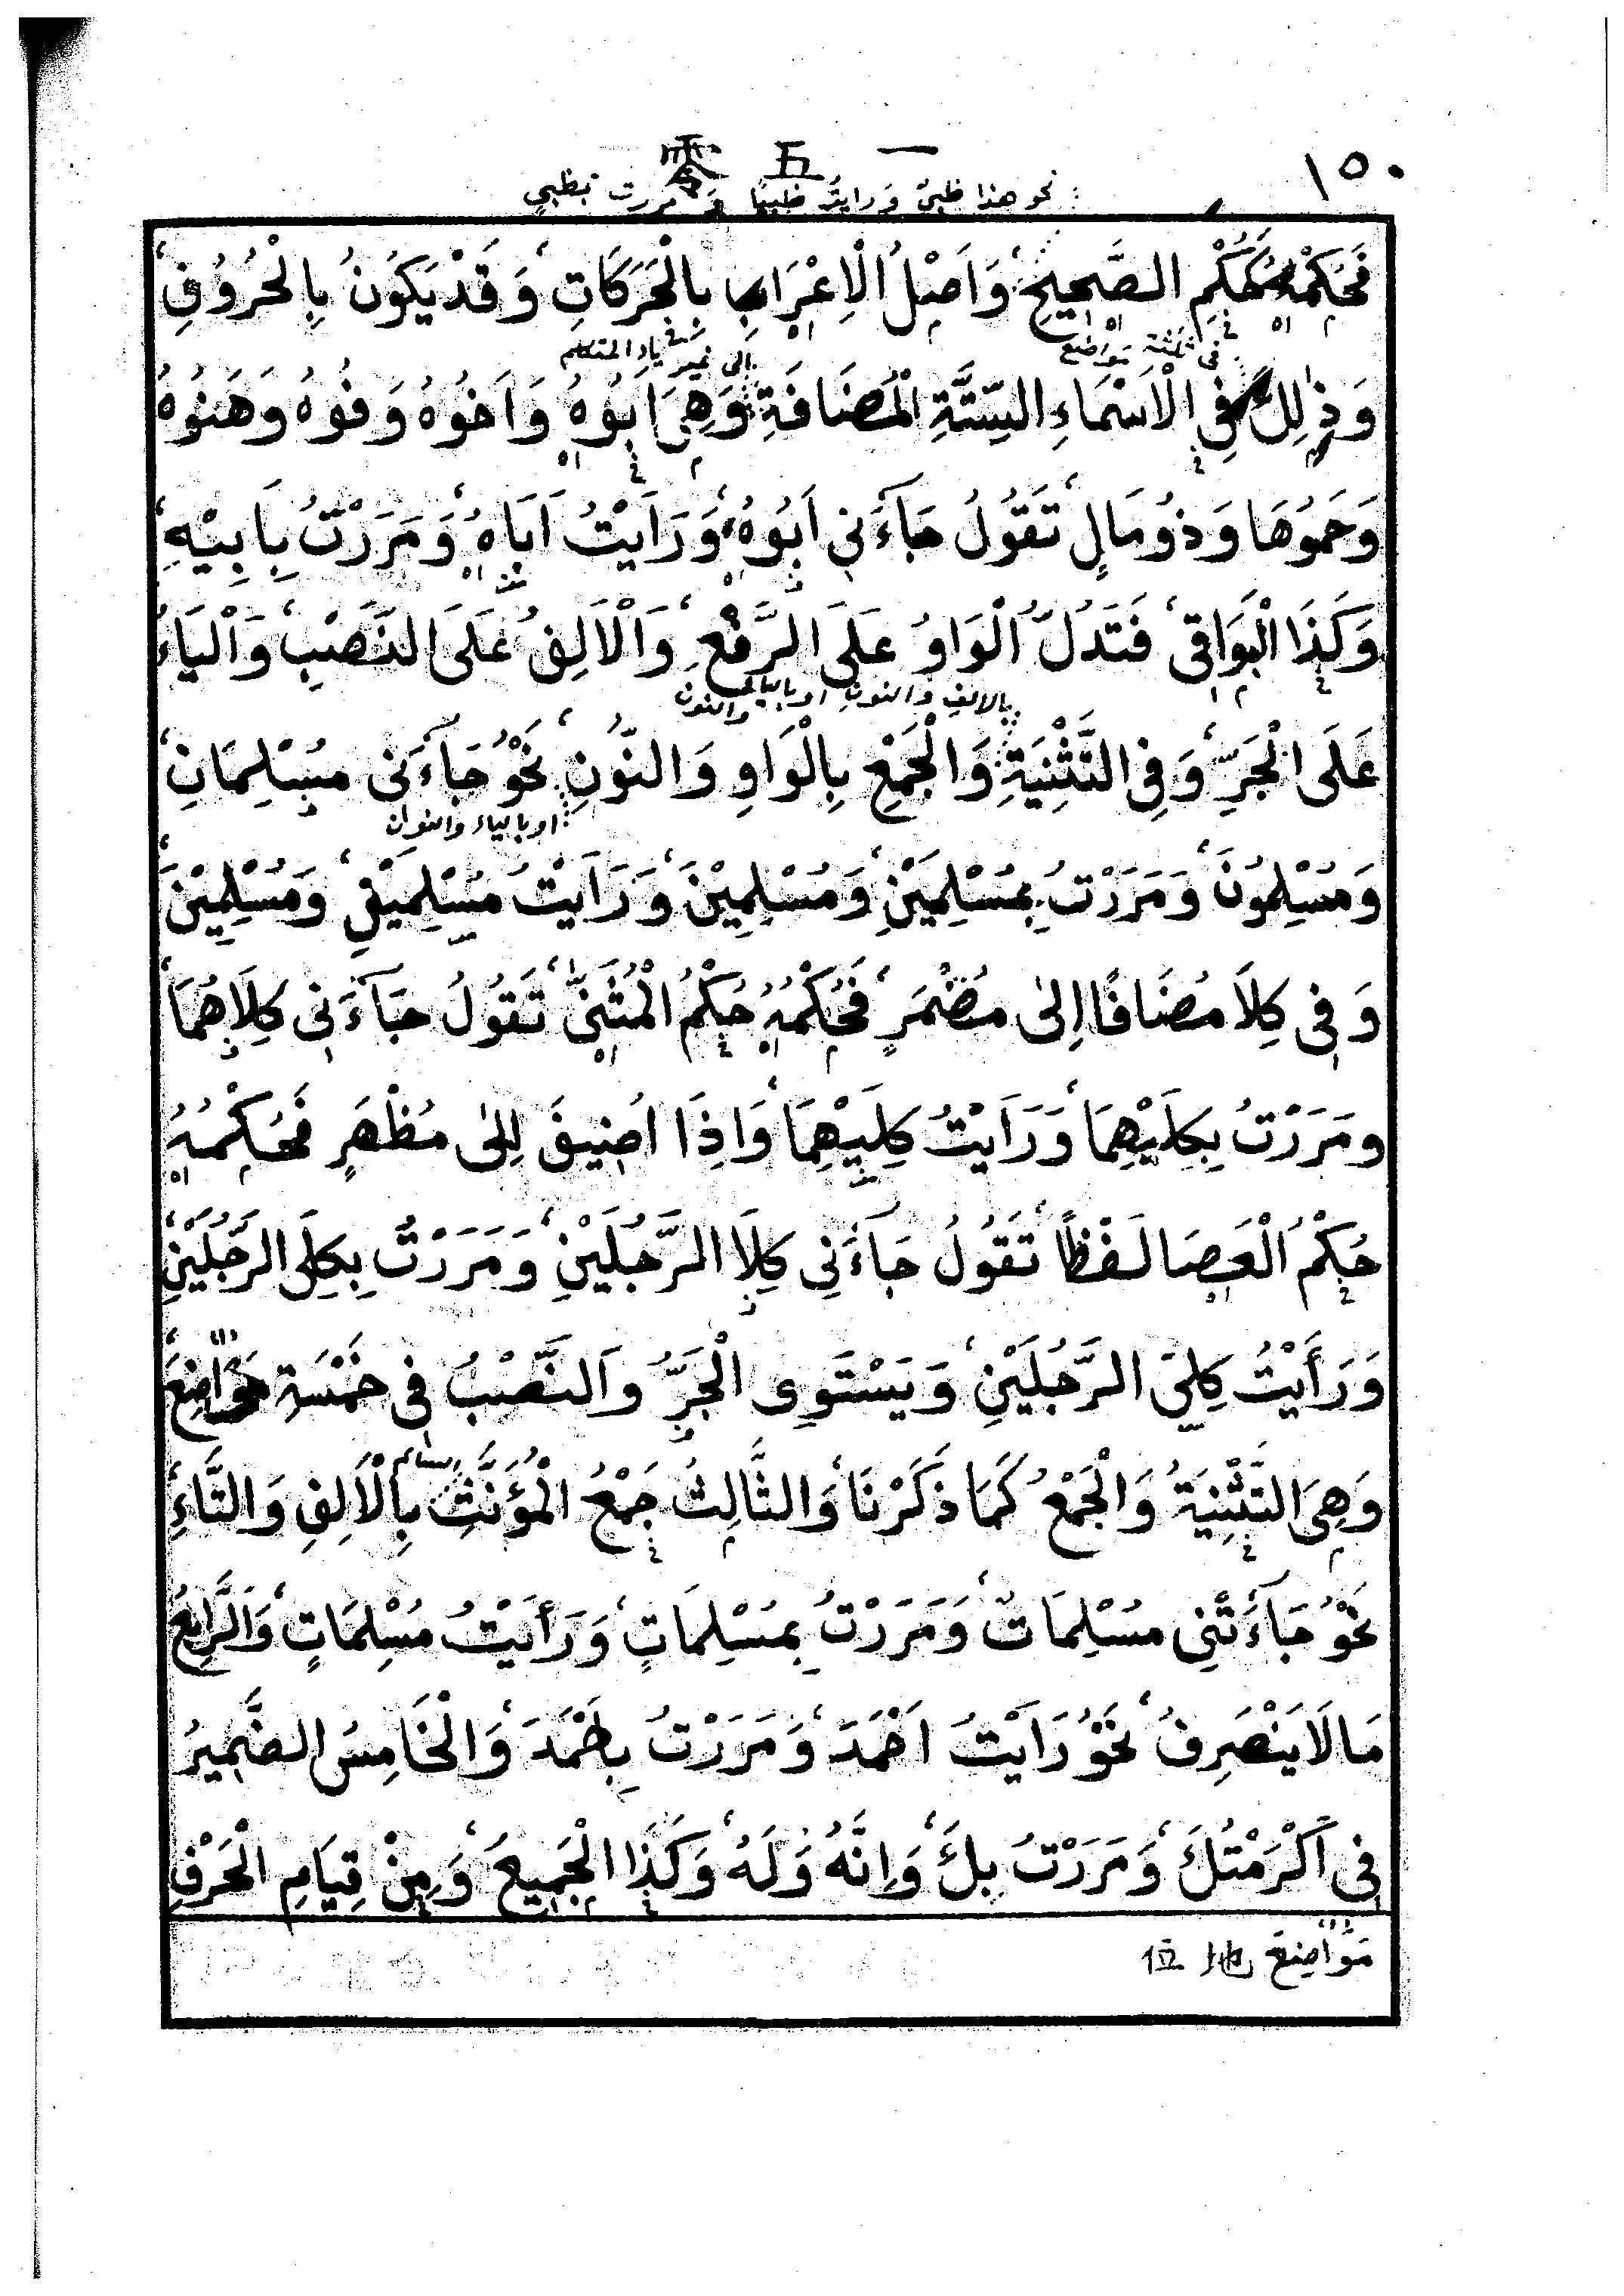 ١٥٠
一五零
نحو هذا ظبىٌ وَ رايتُ ظبيًا وَ مررت بظبيٍ
فَحُكْمُهُ كَحُكْمِ الصَّحِيحِ وَاَصْلُ الْاِعْرَابِ بِالْحَرَكَاتِ وَقَدْ يَكُونُ بِالْحُرُوفِ
فى ثلثة مواضع
الى غير ياء المتكلم
وَذٰلِكَ فِى الْاَسْمَاءِ السِّتَّةِ الْمُضَافَةِ وَهِىَ اَبُوهُ وَاَخُوهُ وَفُوهُ وَهَنُوهُ
وَحَمُوهَا وَذُومَالٍ تَقُولُ جَآءَنِى اَبُوهُ وَرَاَيْتُ اَبَاهُ وَمَرَرْتُ بِاَبِيْهِ
وَكَذَا الْبَوَاقِى فَتَدُلُّ الْوَاوُ عَلَى الرَّفْعِ وَالْاَلِفُ عَلَى النَّصْبِ وَالْيَاءُ
بالالفِ والنون او بالياء والنون
عَلَى الْجَرِّ وَفِى التَّثْنِيَةِ وَالْجَمْعِ بِالْوَاوِ وَالنُّونِ نَحْوُ جَآءَنِى مُسْلِمَانِ
او بالياء والنون
وَمُسْلِمُونَ وَمَرَرْتُ بِمُسْلِمَيْنِ وَمُسْلِمِيْنَ وَرَاَيْتُ مُسْلِمَيْنِ وَمُسْلِمِيْنَ
وَفِى كِلَا مُضَافًا اِلٰى مُضْمَرٍ فَحُكْمُهُ حُكْمُ الْمُثَنّٰى تَقُولُ جَآءَنِى كِلَاهُمَا
وَمَرَرْتُ بِكِلَيْهِمَا وَرَاَيْتُ كِلَيْهِمَا وَاِذَا اُضِيفَ اِلٰى مُظْهَرٍ فَحُكْمُهُ
حُكْمُ الْعَصَا لَفْظًا تَقُولُ جَآءَنِى كِلَا الرَّجُلَيْنِ وَمَرَرْتُ بِكِلَى الرَّجُلَيْنِ
وَرَأَيْتُ كِلَىِ الرَّجُلَيْنِ وَيَسْتَوِى الْجَرُّ وَالنَّصْبُ فِى خَمْسَةِ مَوَاضِعَ
وَهِىَ التَّثْنِيَةُ وَالْجَمْعُ كَمَا ذَكَرْنَا وَالثَّالِثُ جَمْعُ الْمُؤَنَّثِ السالم بِالْاَلِفِ وَالتَّاءِ
نَحْوُ جَآءَتْنِى مُسْلِمَاتٌ وَمَرَرْتُ بِمُسْلِمَاتٍ وَرَأَيْتُ مُسْلِمَاتٍ وَالرَّابِعُ
مَالَا يَنْصَرِفُ نَحْوُ رَاَيْتُ اَحْمَدَ وَمَرَرْتُ بِاَحْمَدَ وَالْخَامِسُ الضَّمِيرُ
فِى اَكْرَمْتُكَ وَمَرَرْتُ بِكَ وَاِنَّهُ وَلَهُ وَكَذَا الْجَمِيعَ وَمِنْ قِيَامِ الْحَرْفِ
مَوَاضِعَ 地位